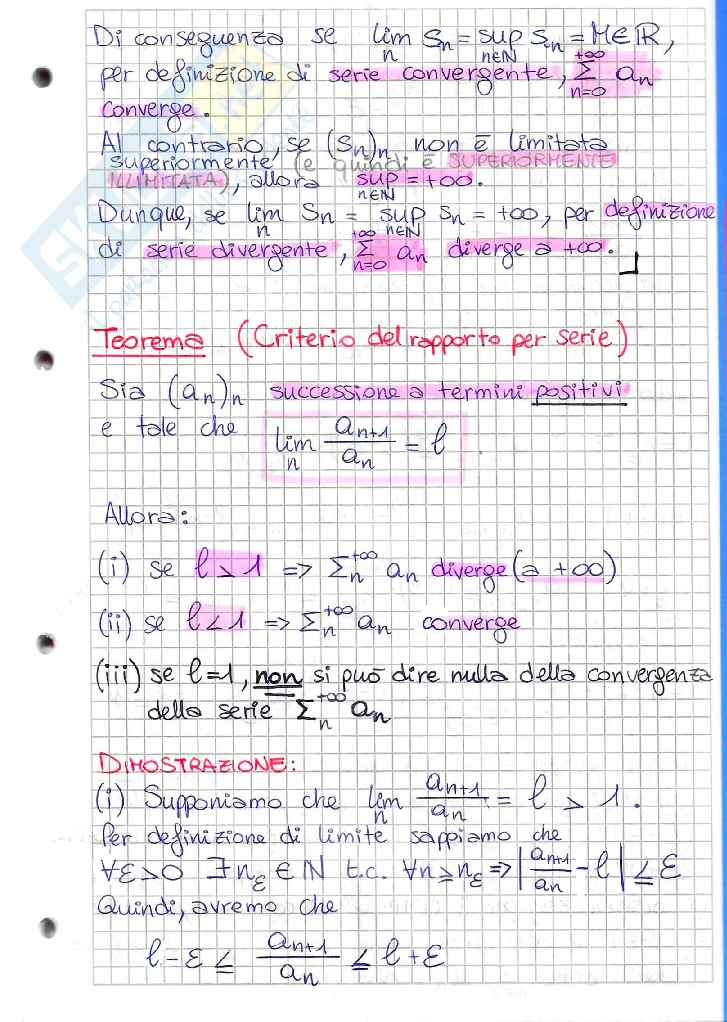 Di conseguenza se lim_n Sn = sup_{n∈N} Sn = M∈ℝ,
per definizione di serie convergente, Σ_{n=0}^{+∞} an
converge.
Al contrario, se (Sn)n non è limitata
superiormente (e quindi è SUPERIORMENTE
ILLIMITATA), allora sup_{n∈N} = +∞.
Dunque, se lim_n Sn = sup_{n∈N} Sn = +∞, per definizione
di serie divergente, Σ_{n=0}^{+∞} an diverge a +∞.
Teorema (Criterio del rapporto per serie)
Sia (an)n successione a termini positivi
e tale che lim_n a_{n+1}/a_n = ℓ
Allora:
(i) se ℓ > 1 => Σ_n^{+∞} an diverge (a +∞)
(ii) se ℓ < 1 => Σ_n^{+∞} an converge
(iii) se ℓ=1, non si può dire nulla della convergenza
della serie Σ_n^{+∞} an
DIMOSTRAZIONE:
(i) Supponiamo che lim_n a_{n+1}/a_n = ℓ > 1.
Per definizione di limite sappiamo che
∀ε>0 ∃nε∈N t.c. ∀n≥nε => |a_{n+1}/a_n - ℓ| ≤ ε
Quindi, avremo che
ℓ-ε ≤ a_{n+1}/a_n ≤ ℓ+ε